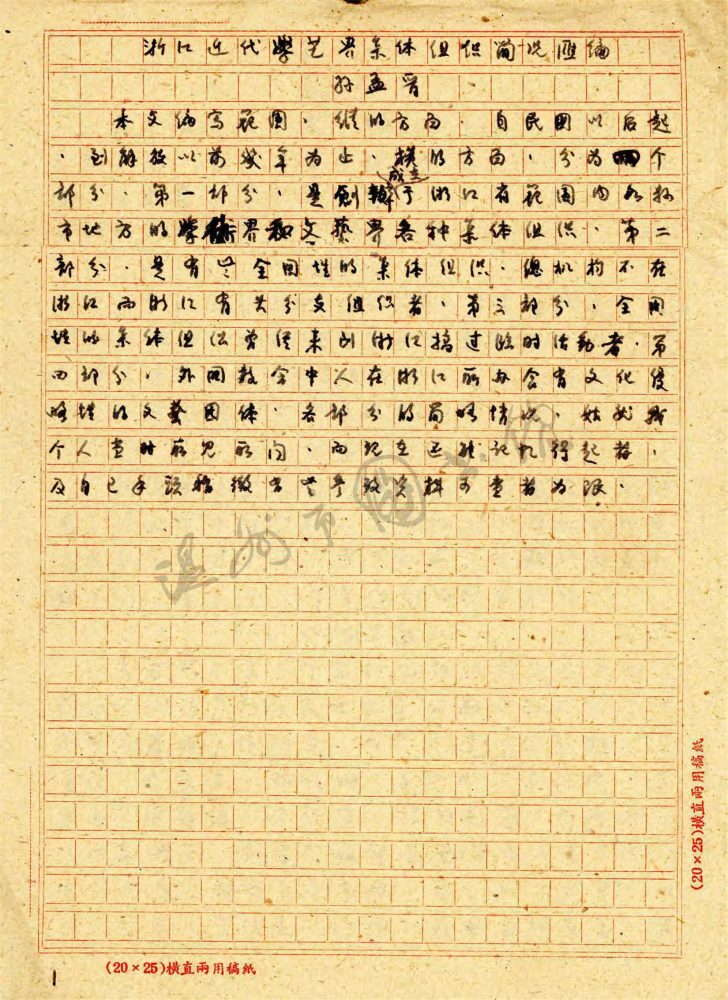 浙江近代學艺界集体组织简况匯编
孙孟晋
本文编写範围，縱的方面，自民国以后起
，到解放以前幾年为止，横的方面，分为四个
部分，第一部分，是創辦成立于浙江省範围内各縣
市地方的學術界和文藝界各种集体组织，第二
部分，是有些全国性的集体组织，總机构不在
浙江而浙江有其分支组织者，第三部分，全国
性的集体组织曾经来到浙江搞过临时活動者，第
四部分，外国教会中人在浙江所办含有文化侵
略性的文藝团体，各部分的简略情况，姑就我
个人当时所见所闻，而现在还能记忆得起者，
及自己手头稍微有些参攷资料可查者为限，
温州市圖书馆
(20×25)橫直兩用稿紙
(20×25)橫直兩用稿紙
1